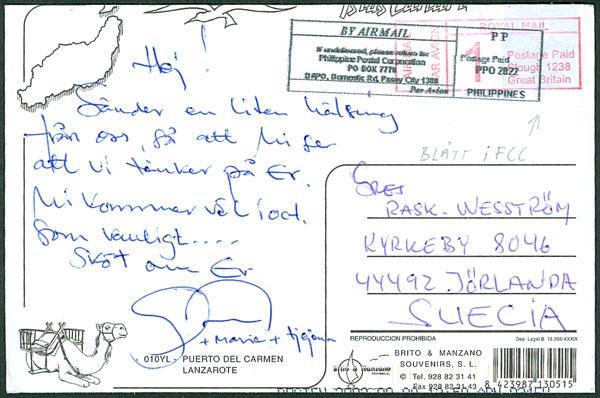 Hej!
Sänder en liten hälsning
från oss, så att Ni ser
att vi tänker på Er.
Ni kommer väl i okt.
som vanligt....
Sköt om Er
+ Marie +
BY AIRMAIL
If undelivered, please return to:
Philippine Postal Corporation
PO BOX 7770
DAPO, Domestic Rd, Pasay City 1308
Par Avion
PP
Postage Paid
PPO 2022
PHILIPPINES
ROYAL MAIL
AIR MAIL
PAR AVION
1
Postage Paid
Slough 1238
Great Britain
BLÅTT i FCC
RASK-WESSTRÖM
KYRKEBY 8046
44492 JÖRLANDA
SUECIA
010YL- PUERTO DEL CARMEN
LANZAROTE
REPRODUCCION PROHIBIDA
Dep. Legal B. 19.266-XXXIX
BRITO & MANZANO
SOUVENIRS, S. L.
© Tel. 928 82 31 41
Fax 928 82 31 43
Brito & Manzano
8 423987 130515